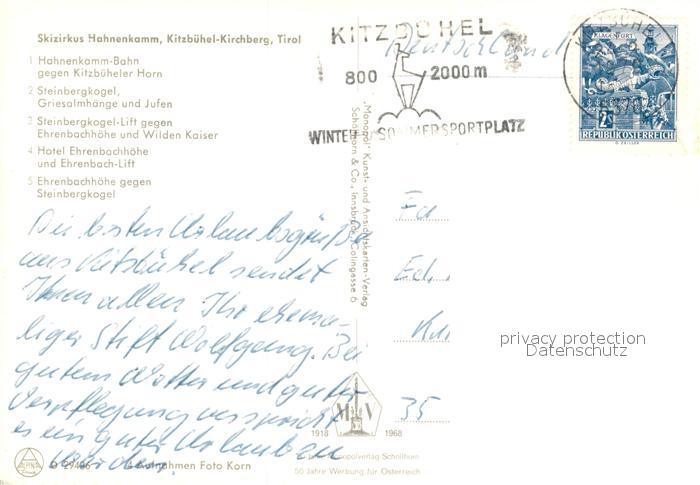 Skizirkus Hahnenkamm, Kitzbühel-Kirchberg, Tirol
1 Hahnenkamm-Bahn
gegen Kitzbüheler Horn
2 Steinbergkogel,
Griesalmhänge und Jufen
3 Steinbergkogel-Lift gegen
Ehrenbachhöhe und Wilden Kaiser
4 Hotel Ehrenbachhöhe
und Ehrenbach-Lift
5 Ehrenbachhöhe gegen
Steinbergkogel
KITZBÜHEL
800 2000m
WINTER SOMMERSPORTPLATZ
Deutschland
KLAGENFURT
2S
REPUBLIK ÖSTERREICH
„Monopol" Kunst- und Ansichtskarten-Verlag
Schöllhorn & Co., Innsbruck, Colingasse 6
Die besten Urlaubsgrüße
aus Kitzbühel sendet
Ihnen allen Ihr ehema-
liger Stift Wolfgang. Bei
gutem Wetter und guter
Verpflegung verspricht
es ein guter Urlauben
werden.
Fa
35
privacy protection
Datenschutz
MV
1918 1968
50 Jahre Monopolverlag Schöllhorn
50 Jahre Werbung für Österreich
ALPINA
Aufnahmen Foto Korn